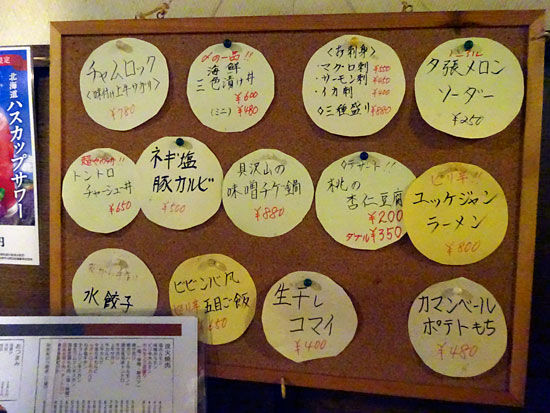 チャムロック
(味付け上ホルモン)
¥780
〆の一品!!
海鮮
三色漬け丼
¥600
(ミニ) ¥480
〈お刺身〉
・マグロ刺 ¥500
・サーモン刺 ¥450
・イカ刺 ¥400
◇三種盛り ¥880
夕張メロン
ソーダー
¥250
北海道
ハスカップサワー
トントロ
チャーシュー丼
¥650
ネギ塩
豚カルビ
¥500
具沢山の
味噌チゲ鍋
¥880
デザート!!
桃の
杏仁豆腐
¥200
ダブル¥350
ピリ辛!!
ユッケジャン
ラーメン
¥800
水餃子
ビビンバ風
ピリ辛 五目ご飯
¥650
生干し
コマイ
¥400
カマンベール
ポテトもち
¥480
おつまみ